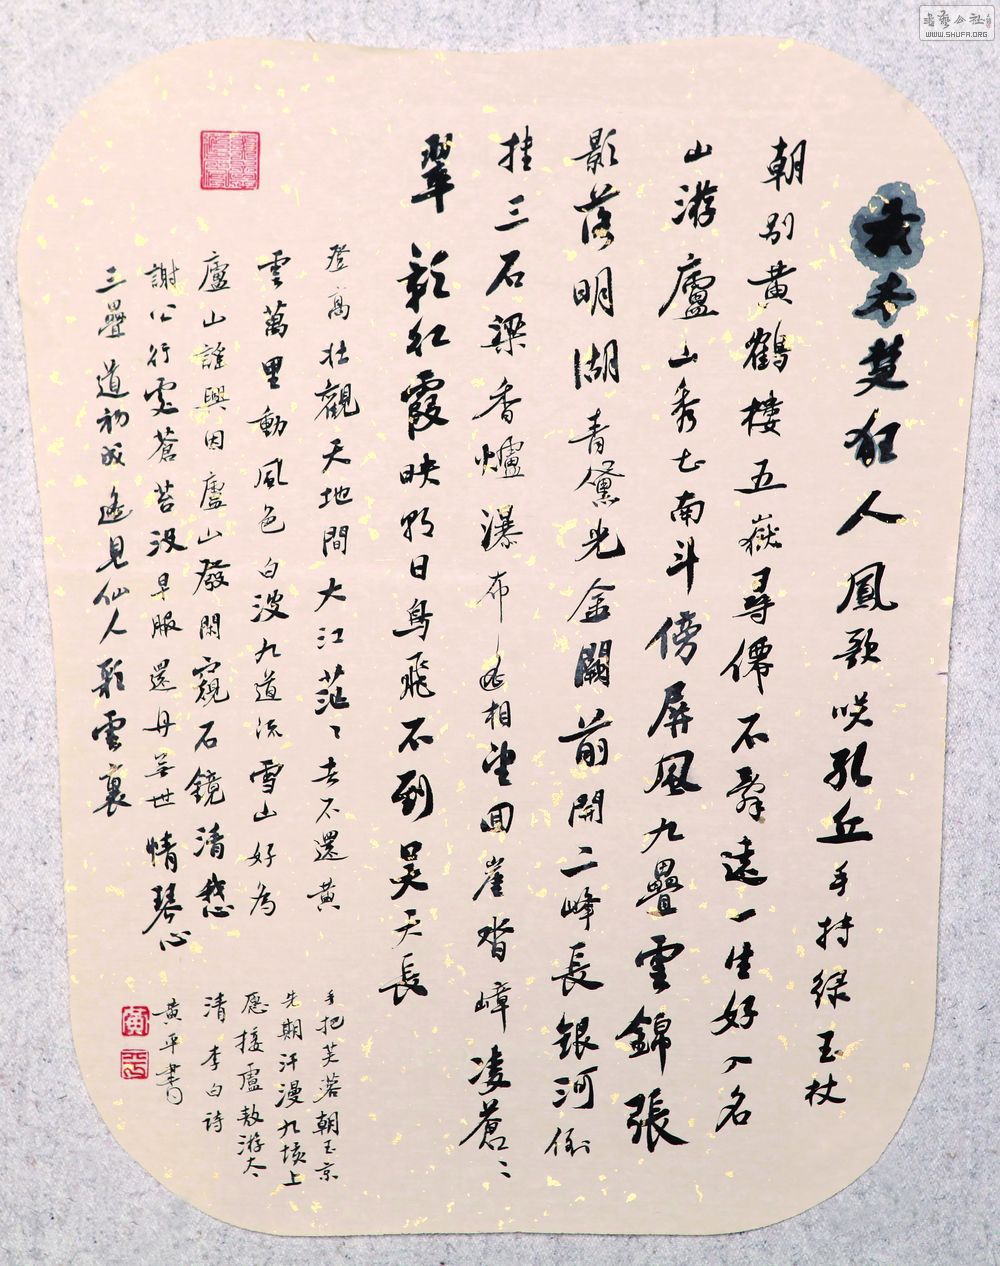 我本楚狂人鳳歌咲孔丘手持绿玉杖
朝別黃鶴樓五嶽尋僊不辭遠一生好入名
山游廬山秀出南斗傍屏風九疊雲錦張
影落明湖青黛光金闕前開二峰長銀河倒
挂三石梁香爐瀑布遙相望回崖沓嶂凌蒼〻
翠彩红霞映朝日鳥飛不到吴天長
登高壯觀天地間大江茫〻去不還黄
雲萬里動風色白波九道流雪山好為
廬山謠興因廬山發閑窺石鏡清我心
謝公行處蒼苔没早服還丹無世情琴心
三疊道初成遙見仙人彩雲裏
手把芙蓉朝玉京
先期汗漫九垓上
應接盧敖游太
清 李白诗
黄平書
黄
平
書藝公社
WWW.SHUFA.ORG